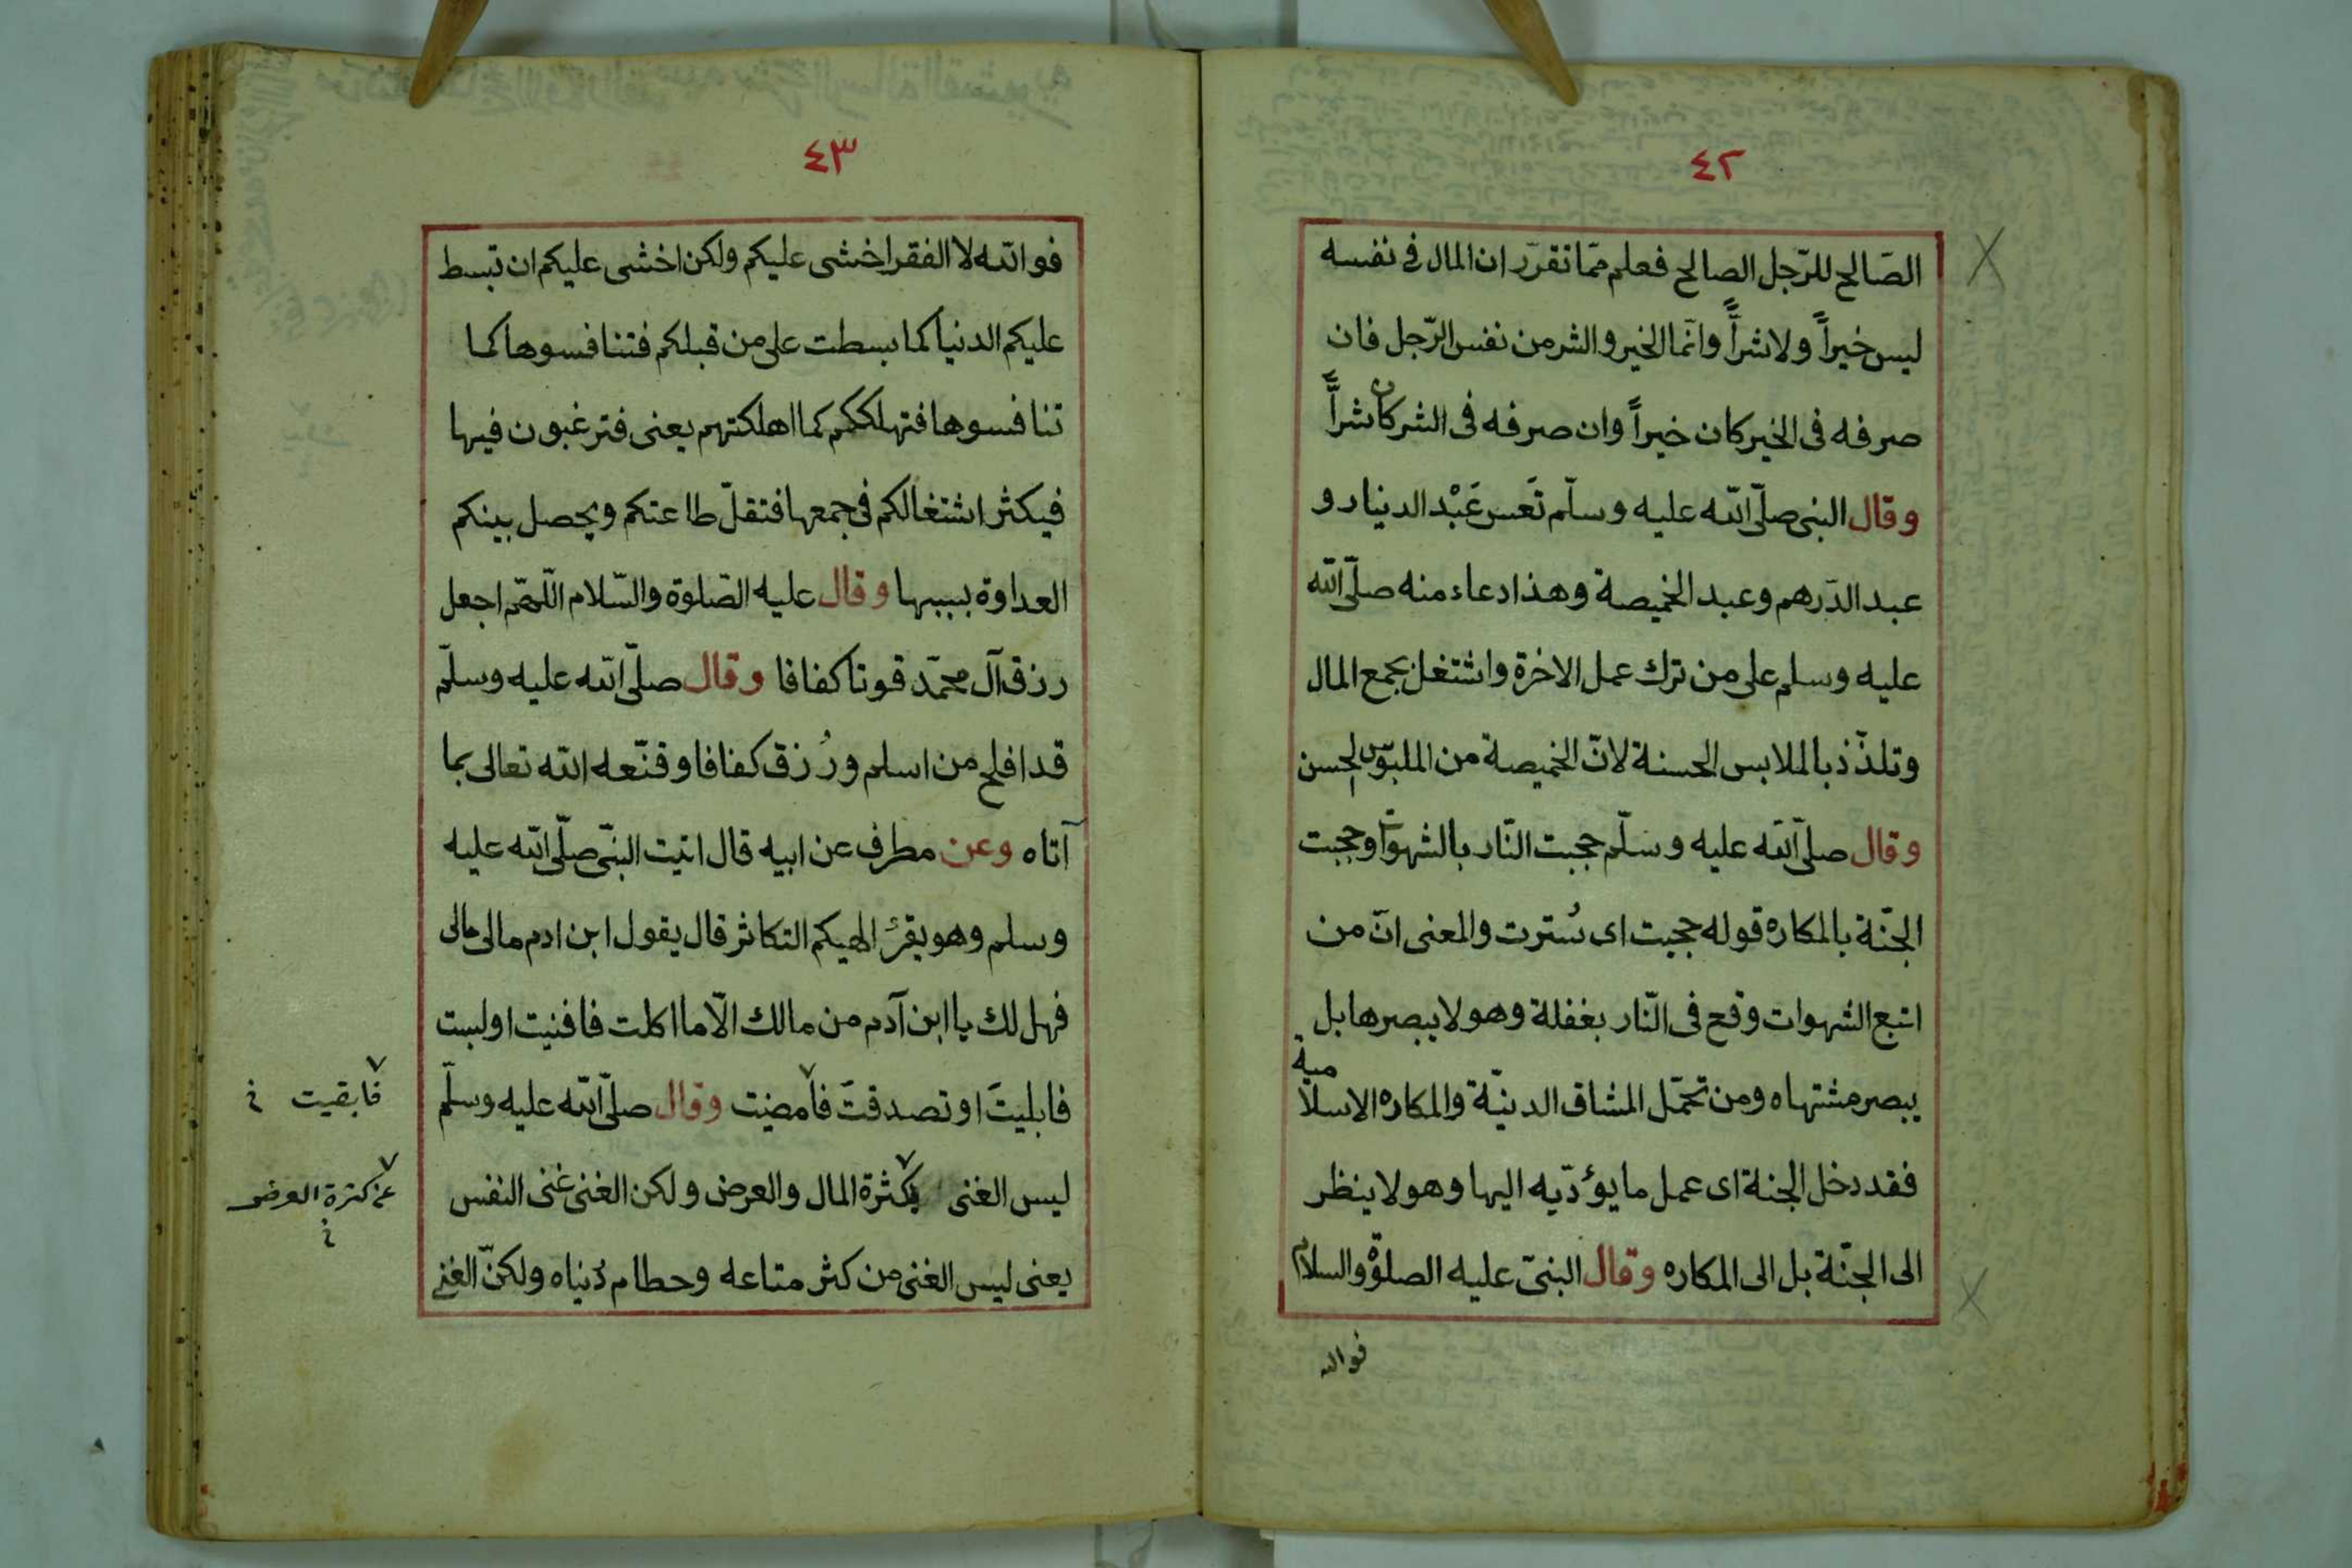 ٤٢
الصَالح للرّجل الصالح فعلم ممّا تقرّر ان المال فى نفسه
ليس خيراً ولا شراًّ وانّما الخير والشر من نفس الرّجل فان
صرفه فى الخير كان خيراً وان صرفه فى الشر كان شراًّ
وقال النبى صلّى الله عليه وسلّم تَعَس عَبْد الدينار و
عبد الدَرهم وعبد الخميصة وهذا دعاء منه صلّى الله
عليه وسلم على من ترك عمل الاخرة واشتغل بجمع المال
وتلذّذ بالملابس الحسنة لانّ الخميصة من الملبوس الحسن
وقال صلّى الله عليه وسلّم حجبت النّار بالشهوات وحجبت
الجنّة بالمكاره قوله حجبت اى سُترت والمعنى انّ من
اتبع الشهوات وقع فى النّار بغفلة وهو لا يبصرها بل
يبصر مشتهاه ومن تحمّل المشاق الدينيّة والمكاره الاسلامية
فقد دخل الجنة اى عمل ما يؤدّيه اليها وهو لا ينظر
الى الجنّة بل الى المكاره وقال النبىّ عليه الصلوة والسلام
فوالله
٤٣
فوالله لا الفقر اخشى عليكم ولكن اخشى عليكم ان تبسط
عليكم الدنيا كما بسطت على من قبلكم فتنافسوها كما
تنافسوها فتهلككم كما اهلكتهم يعنى فترغبون فيها
فيكثر اشتغالكم فى جمعها فتقلّ طاعتكم ويحصل بينكم
العداوة بسببها وقال عليه الصّلوة والسّلام اللّهمّ اجعل
رزق آل محمّد قوتا كفافا وقال صلّى الله عليه وسلّم
قد افلح من اسلم ورُزق كفافا وقنّعه الله تعالى بما
آتاه وعن مطرف عن ابيه قال اتيت النبّى صلّى الله عليه
وسلم وهو يقرئ الهيكم التكاثر قال يقول ابن ادم مالى مالى
فهل لك يا ابن آدم من مالك الّا ما اكلت فافنيت او لبست
فابليتَ او تصدقتَ فامضيت وقال صلّى الله عليه وسلّم
فابقيت خ
ليس الغنى بكثرة المال والعرض ولكن الغنى غنى النفس
عن كثرة العرض خ
يعنى ليس الغنى من كثر متاعه وحطام دُنياه ولكنّ الغنى